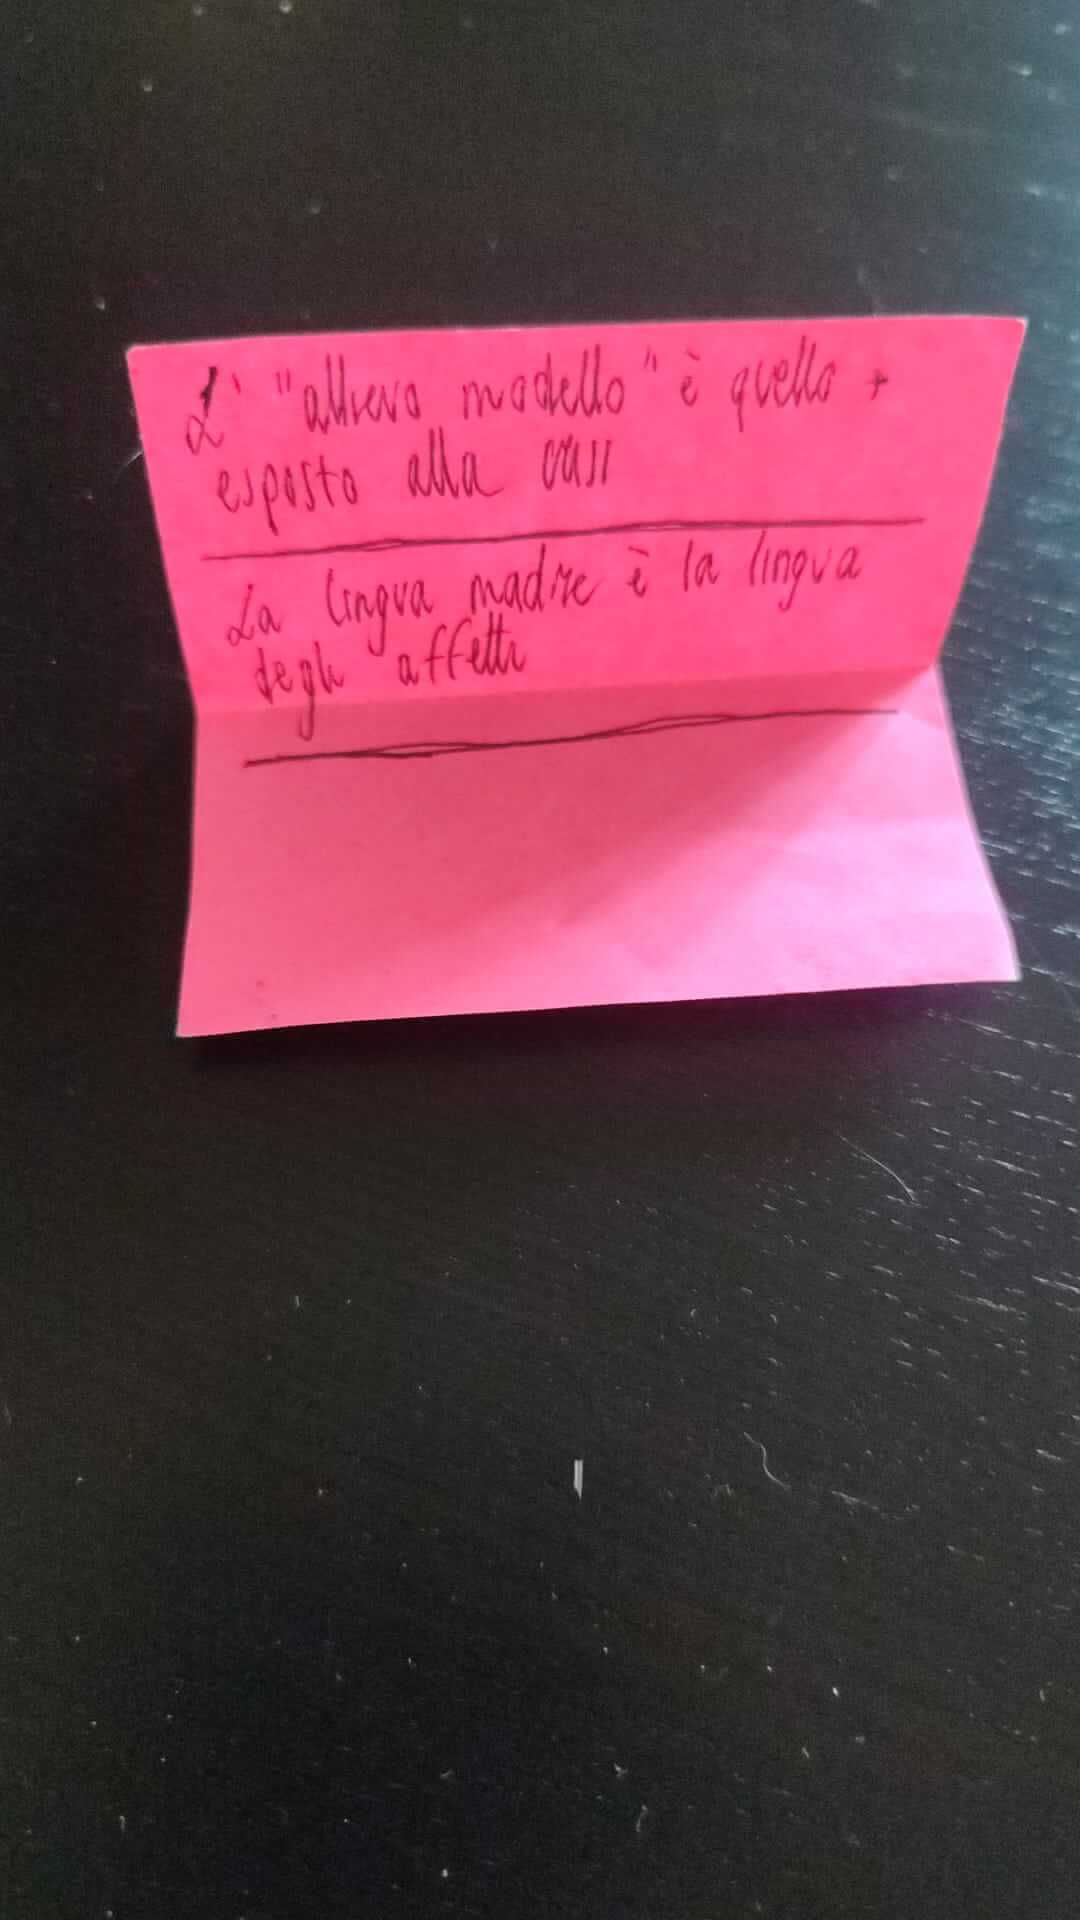 L' "allievo modello" è quello +
esposto alla crisi
La lingua madre è la lingua
degli affetti